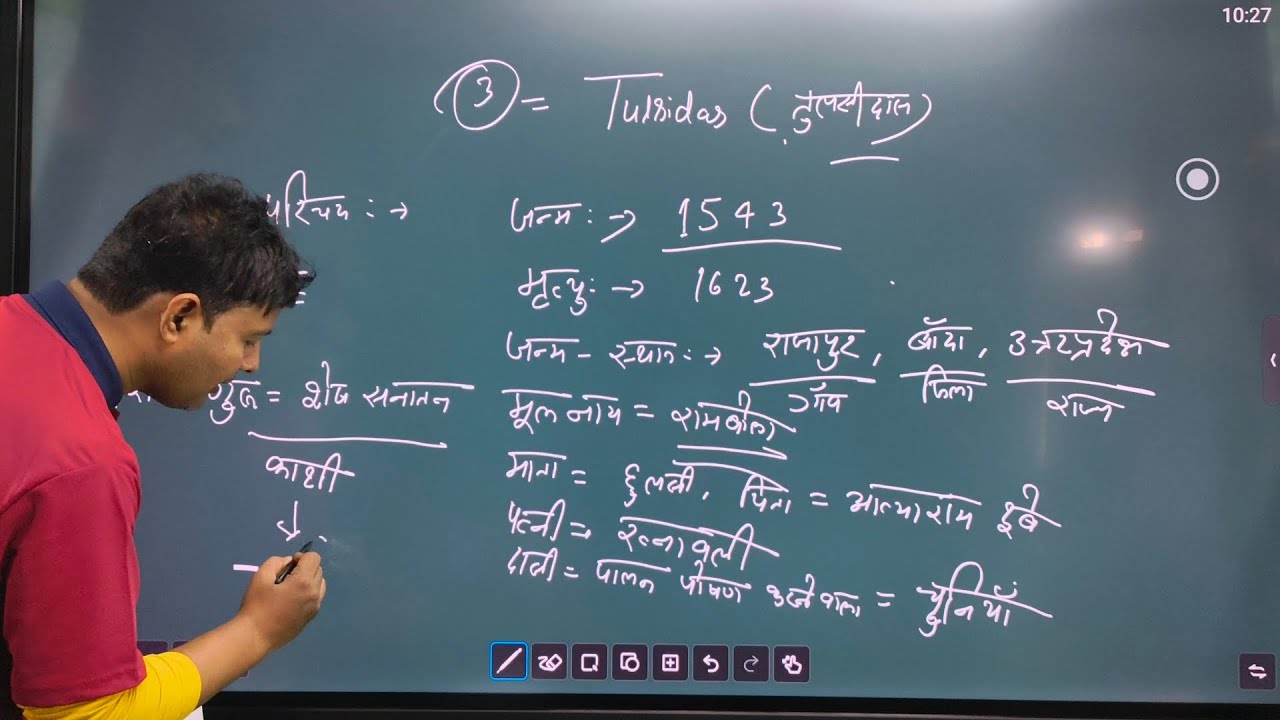 10:27
3 = Tulsidas (तुलसीदास)
परिचय :→
जन्म :→ 1543
मृत्यु :→ 1623
जन्म - स्थान :→ राजापुर, बाँदा, उत्तरप्रदेश
गाँव जिला राज्य
गुरु = शेष सनातन
काशी
↓
मूल नाम = रामबोला
माता = हुलसी, पिता = आत्माराम दुबे
पत्नी = रत्नावली
दासी = पालन पोषण करनेवाला = चुनियाँ